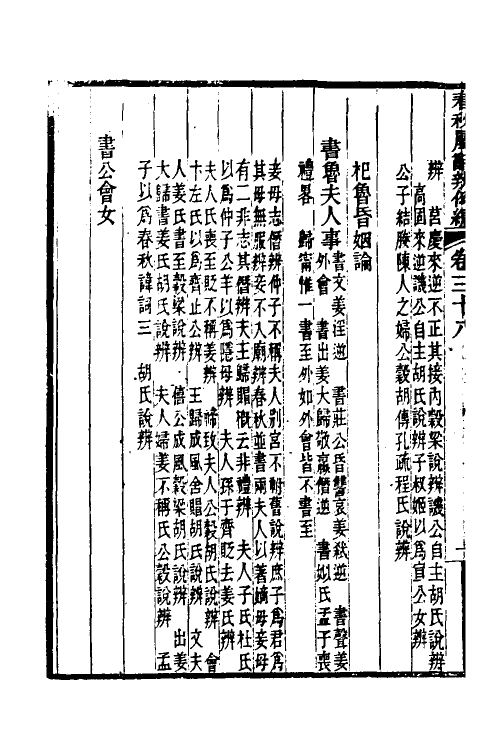 春秋屬辭辨例編 卷三十八
辨 莒慶來逆不正其接內穀梁說辨譏公自主胡氏說辨
高固來逆譏公自主胡氏說辨子叔姬以為宣公女辨
公子結媵陳人之婦公穀胡傳孔疏程氏說辨
杞魯昏姻論
書魯夫人事
書文姜淫逆 書莊公昏讐哀姜弒逆 書聲姜
外會 書出姜大歸敬嬴僭逆 書姒氏孟子喪
禮畧 歸甯惟一書至外如外會皆不書至
妾母志僭辨仲子不稱夫人別宮不祔舊說辨庶子為君為
其母無服辯妾不入廟辨春秋並書兩夫人以著嫡母妾母
有二非志其僭辨夫王歸賵襚云非禮辨 夫人子氏杜氏
以為仲子公羊以為隱母辨 夫人孫于齊貶去姜氏辨
夫人氏喪至貶不稱姜辨 禘致夫人公穀胡氏說辨 會
卞左氏以為齊止公辨 王歸成風含賵胡氏說辨 文夫
人姜氏書至穀梁說辨 僖公成風穀梁胡氏說辨 出姜
大歸書姜氏胡氏說辨 夫人婦姜不稱氏公穀說辨 孟
子以為春秋諱詞三 胡氏說辨
書公會女